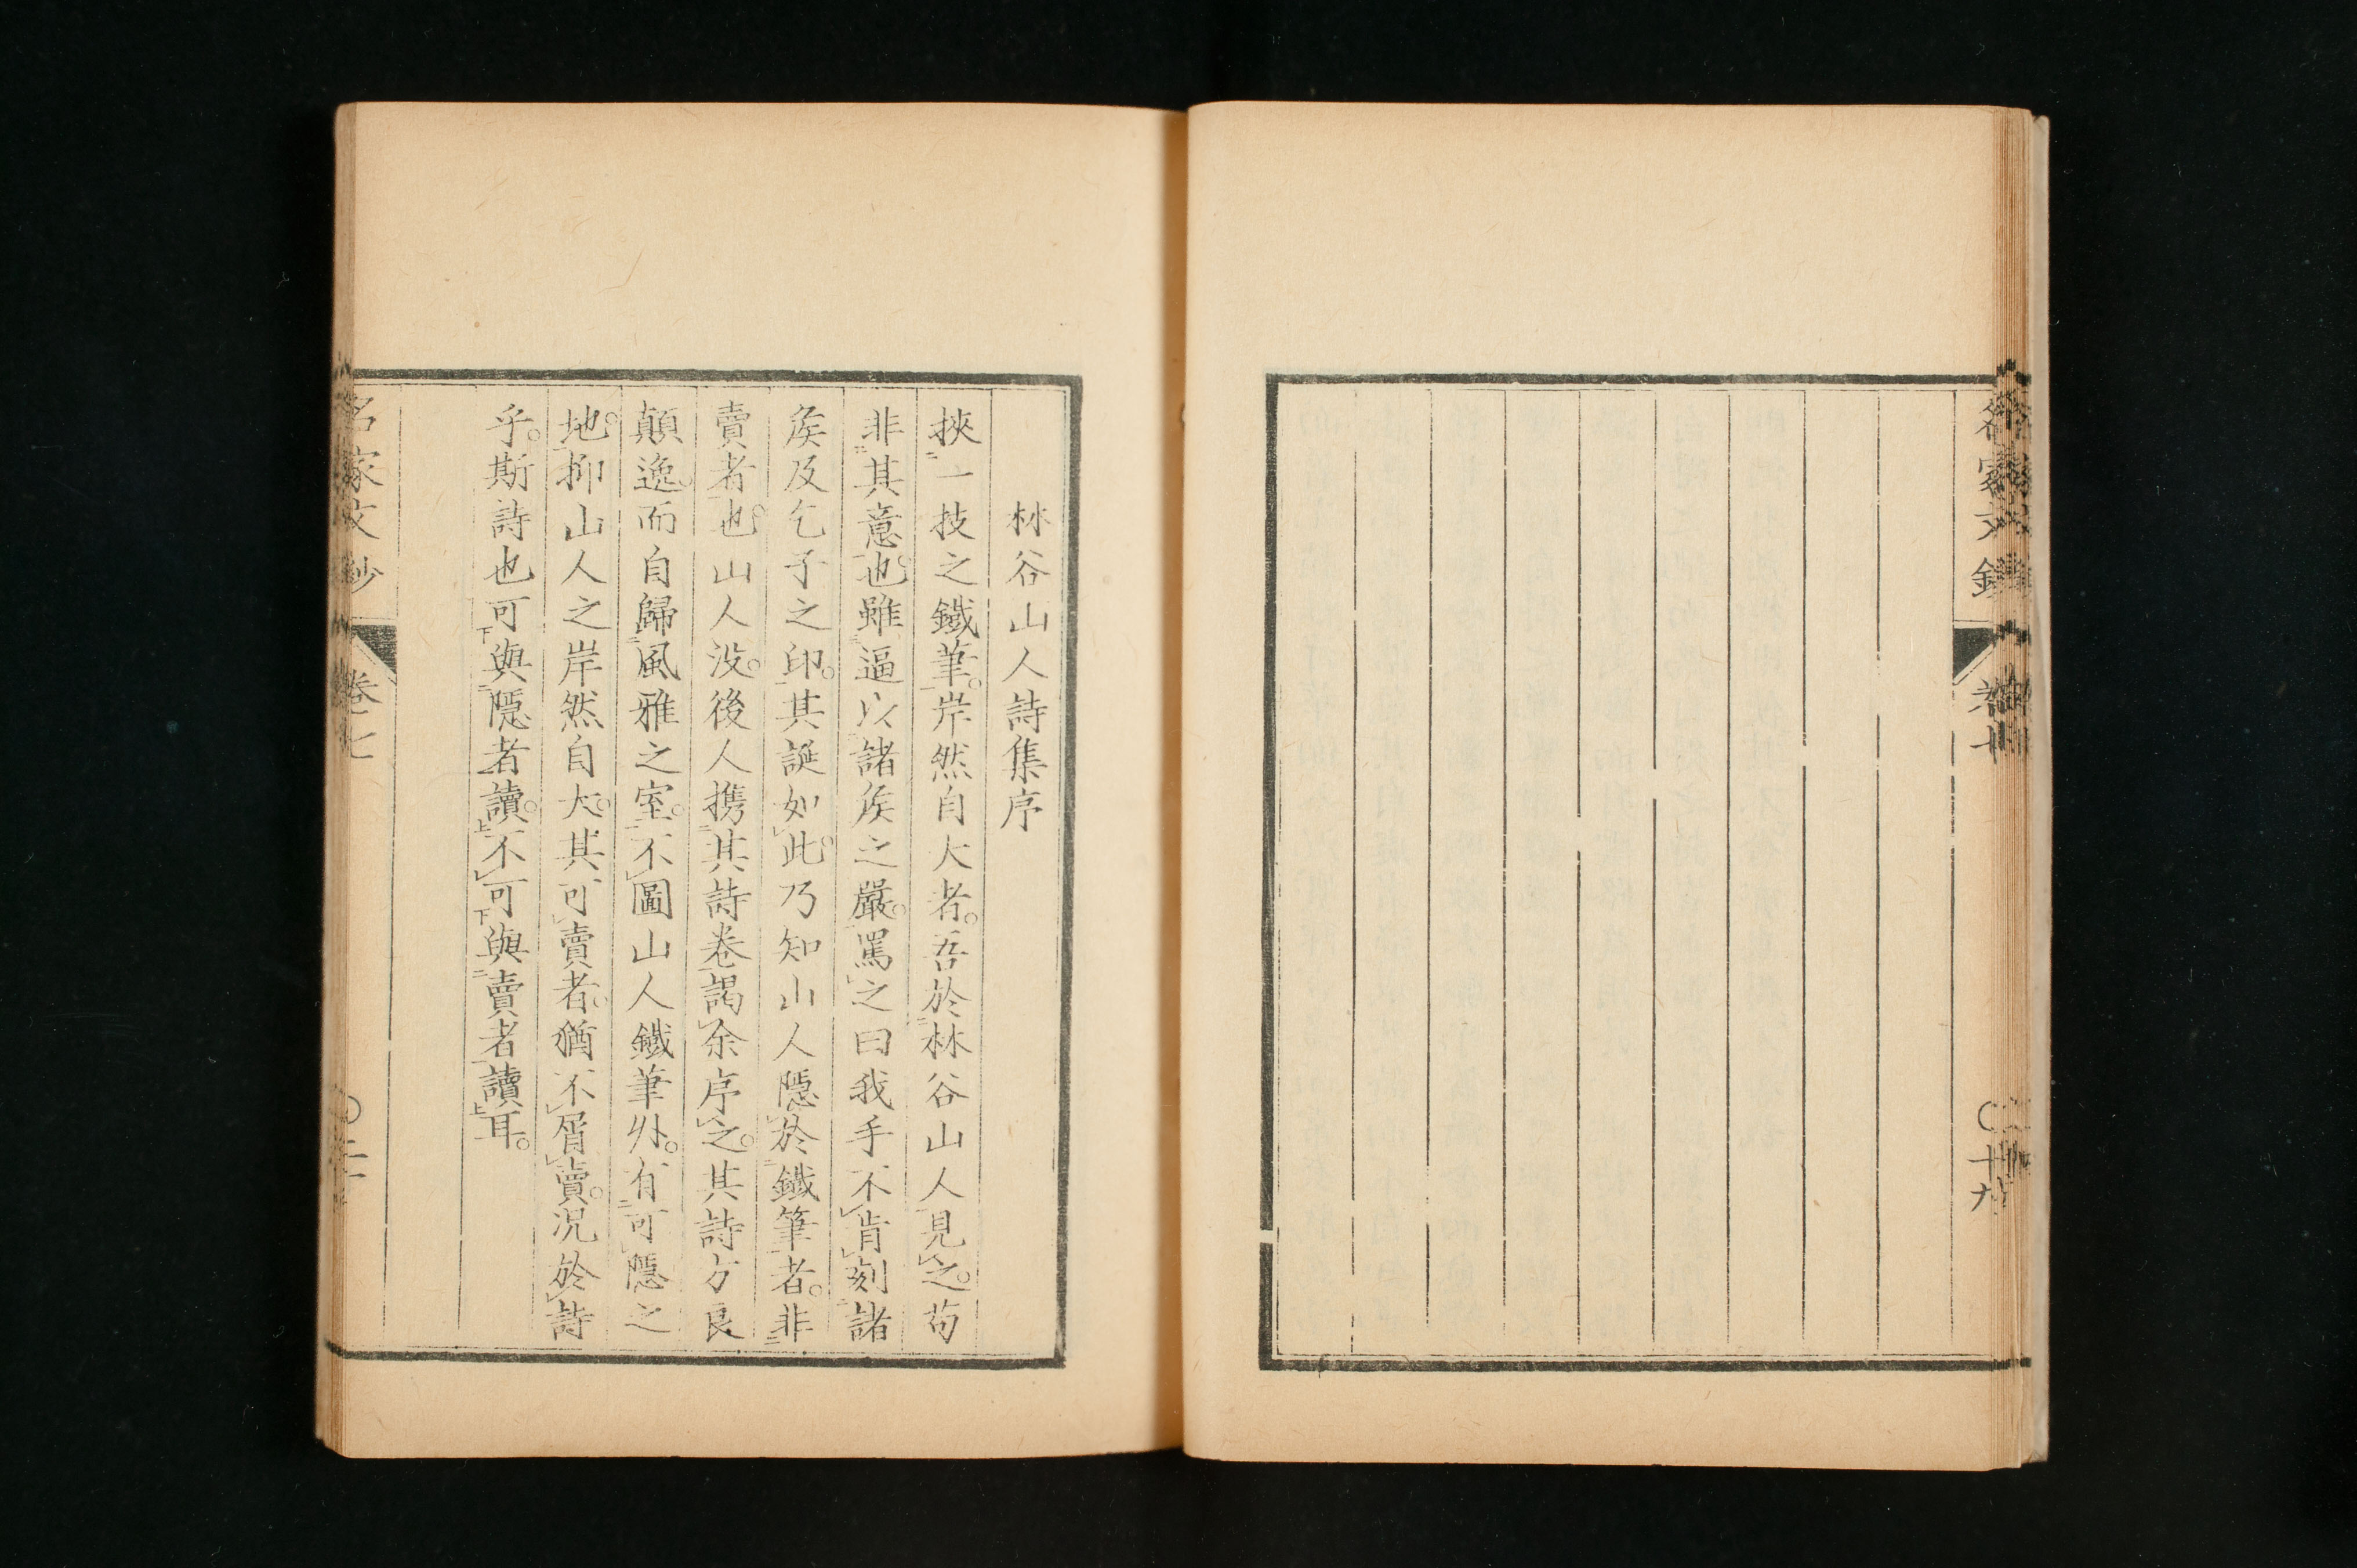 林谷山人詩集序
挾一技之鐵筆。岸然自大者。吾於林谷山人見之。苟
非其意也。雖逼以諸矦之嚴。罵之曰我手不肯刻諸
矦及乞子之印。其誕如此。乃知山人隱於鐵筆者。非
賣者也。山人没。後人携其詩卷謁余序之。其詩方良
顛逸。而自歸風雅之室。不圖山人鐵筆外。有可隱之
地。抑山人之岸然自大。其可賣者。猶不屑賣。況於詩
乎。斯詩也可與隱者讀。不可與賣者讀耳。
名家文鈔
卷七